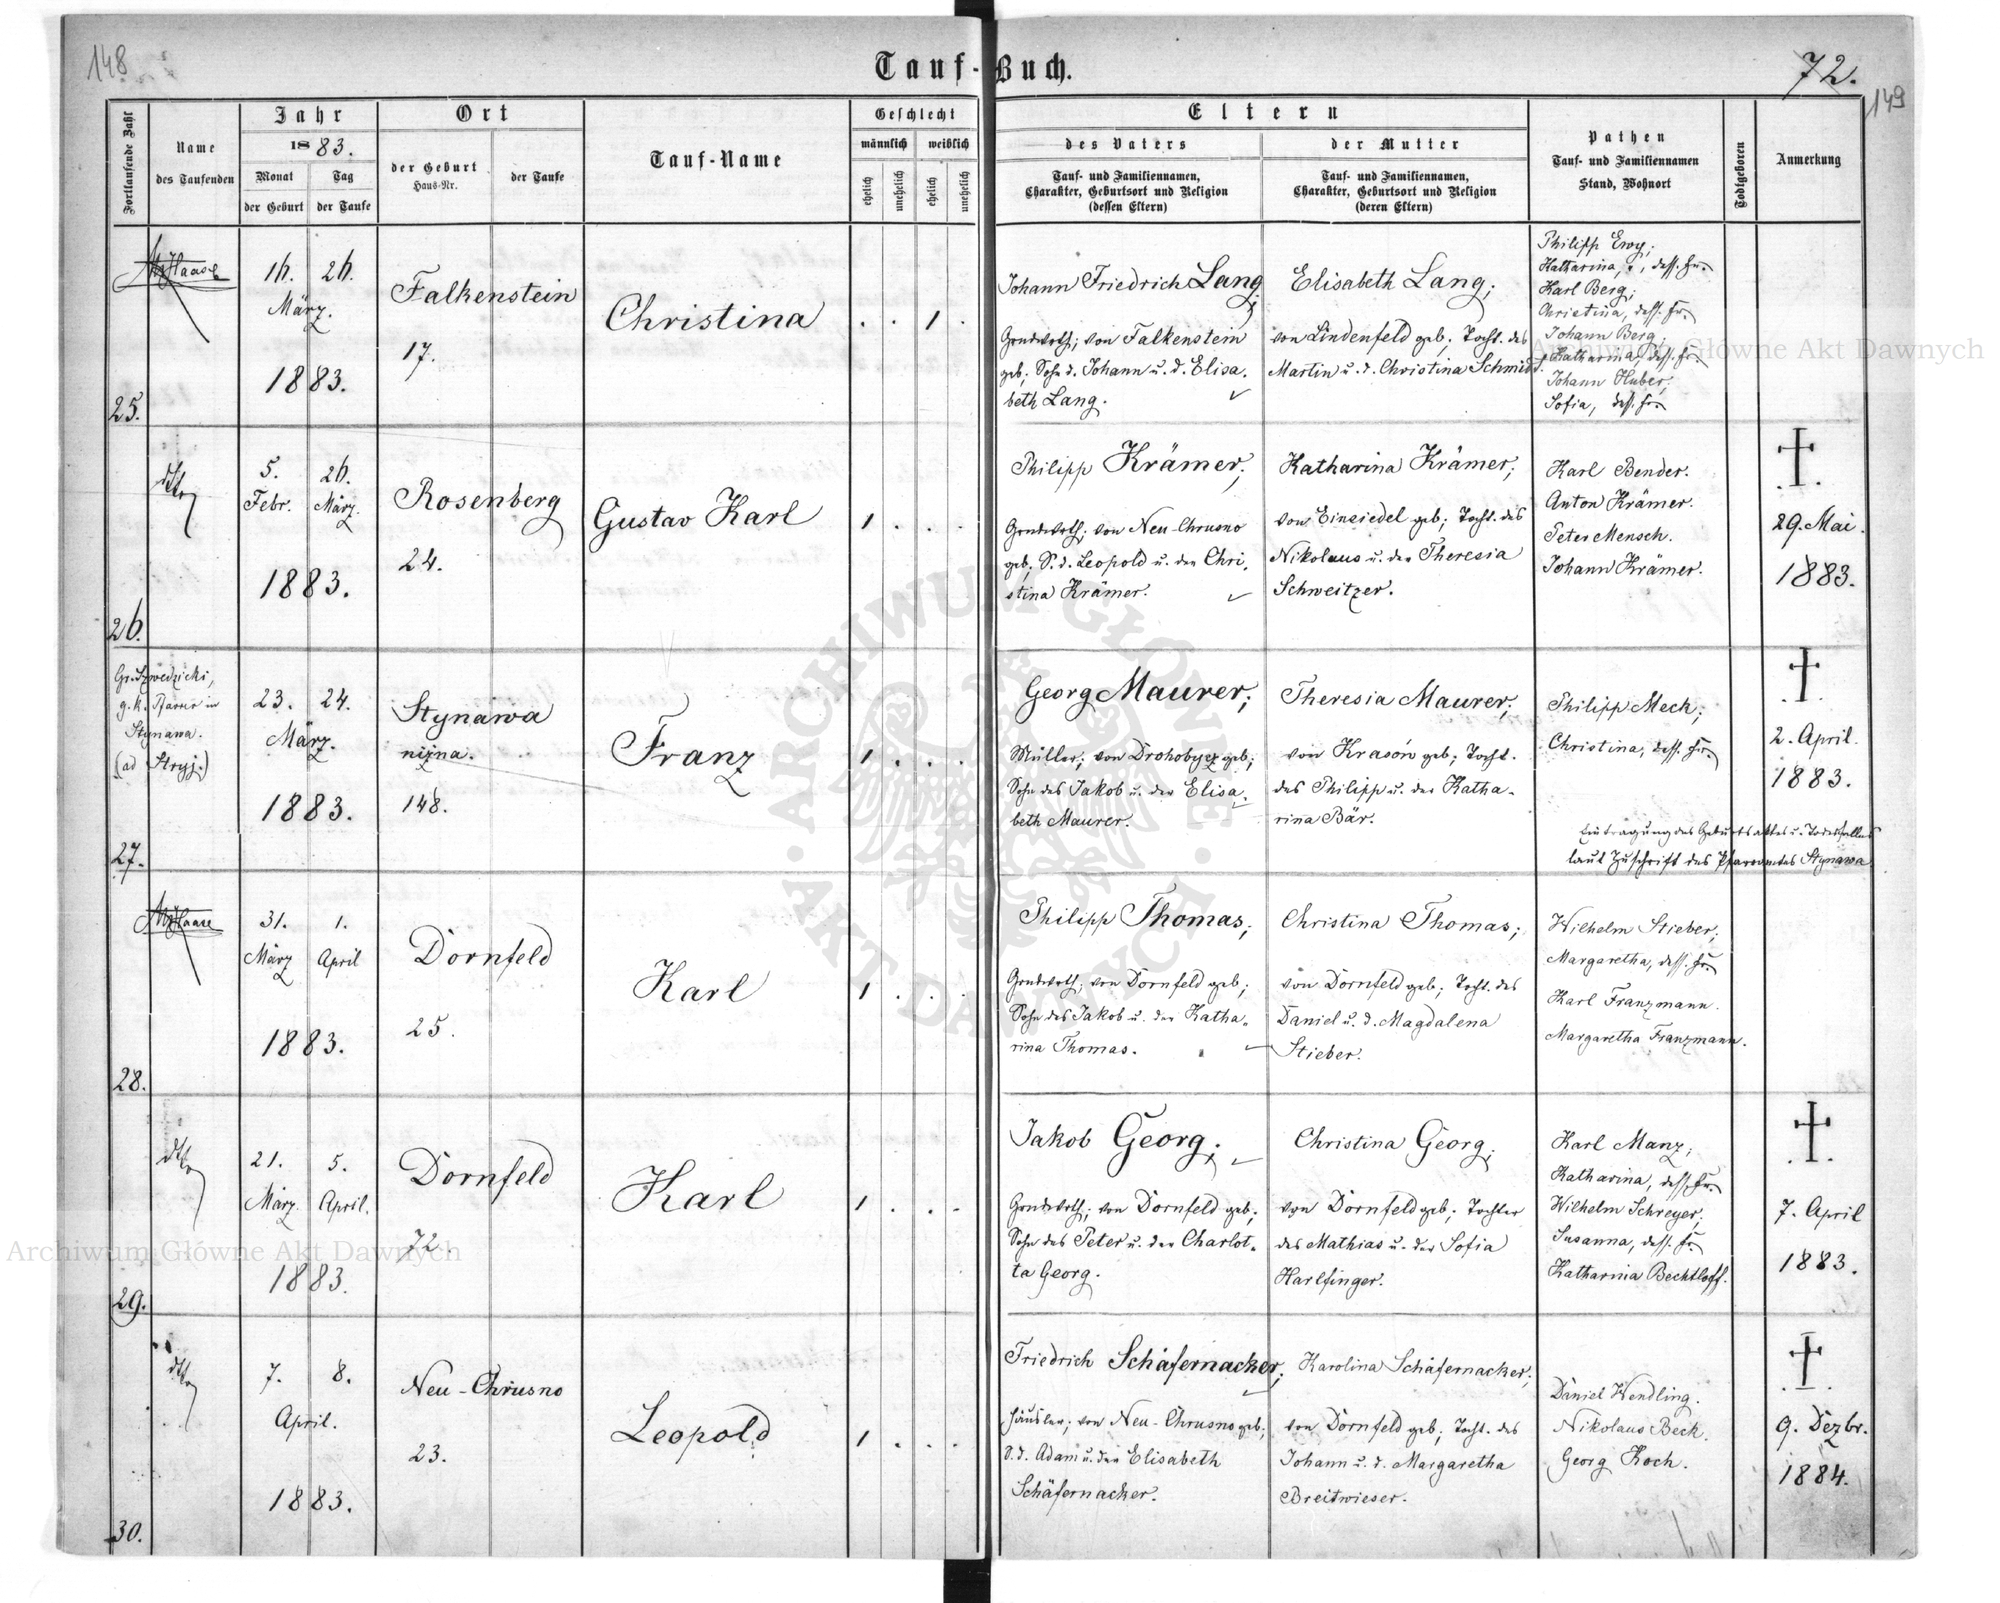 148
Tauf-Buch.
72.
149
Fortlaufende Zahl
Name
des Taufenden
Jahr
1883.
Monat
der Geburt
Tag
der Taufe
Ort
der Geburt
Haus-Nr.
der Taufe
Tauf-Name
Geschlecht
männlich
weiblich
ehelich
unehelich
ehelich
unehelich
Eltern
des Vaters
Tauf- und Familiennamen,
Charakter, Geburtsort und Religion
(dessen Eltern)
der Mutter
Tauf- und Familiennamen,
Charakter, Geburtsort und Religion
(deren Eltern)
Pathen
Tauf- und Familiennamen
Stand, Wohnort
Todtgeboren
Anmerkung
25.
Haase
16. 26.
März.
1883.
Falkenstein
17.
Christina
. . 1 .
Johann Friedrich Lang;
Grndwrth; von Falkenstein
geb; Sohn d. Johann u. d. Elisa-
beth Lang.
Elisabeth Lang;
von Lindenfeld geb; Tocht. des
Martin u. d. Christina Schmidt.
Philipp Ewy;
Katharina, dess. Fr.
Karl Berg;
Christina, dess. Fr.
Johann Berg;
Katharina, dess. Fr.
Johann Huber;
Sofia, dess. Fr.
26.
dtto
5. 26.
Febr. März.
1883.
Rosenberg
24.
Gustav Karl
1 . . .
Philipp Krämer;
Grndwrth; von Neu-Chrusno
geb; S. d. Leopold u. der Chri-
stina Krämer.
Katharina Krämer;
von Einsiedel geb; Tocht. des
Nikolaus u. der Theresia
Schweitzer.
Karl Bender.
Anton Krämer.
Peter Mensch.
Johann Krämer.
29. Mai
1883.
27.
Gr. Szwedzicki,
g. k. Pfarrer in
Stynawa.
(ad Stryj.)
23. 24.
März.
1883.
Stynawa
niżna.
148.
Franz
1 . . .
Georg Maurer;
Müller; von Drohobycz geb;
Sohn des Jakob u. der Elisa-
beth Maurer.
Theresia Maurer;
von Krasów geb; Tocht.
des Philipp u. der Katha-
rina Bär.
Philipp Mech;
Christina, dess. Fr.
2. April.
1883.
Eintragung des Geburtsaktes u. Todesfalles
laut Zuschrift des Pfarramtes Stynawa
28.
Haase
31. 1.
März April
1883.
Dornfeld
25.
Karl
1 . . .
Philipp Thomas;
Grndwrth; von Dornfeld geb;
Sohn des Jakob u. der Katha-
rina Thomas.
Christina Thomas;
von Dornfeld geb; Tocht. des
Daniel u. d. Magdalena
Stieber.
Wilhelm Stieber;
Margaretha, dess. Fr.
Karl Franzmann.
Margaretha Franzmann.
29.
dtto
21. 5.
März. April.
1883.
Dornfeld
72
Karl
1 . . .
Jakob Georg;
Grndwrth; von Dornfeld geb;
Sohn des Peter u. der Charlot-
ta Georg.
Christina Georg;
von Dornfeld geb; Tochter
des Mathias u. der Sofia
Harlfinger.
Karl Manz;
Katharina, dess. Fr.
Wilhelm Schreyer;
Susanna, dess. Fr.
Katharina Bechtloff.
7. April
1883.
30.
dtto
7. 8.
April.
1883.
Neu-Chrusno
23.
Leopold
1 . . .
Friedrich Schäfernacker;
Häusler; von Neu-Chrusno geb;
S. d. Adam u. der Elisabeth
Schäfernacker.
Karolina Schäfernacker;
von Dornfeld geb; Tocht. des
Johann u. d. Margaretha
Breitwieser.
Daniel Wendling.
Nikolaus Beck.
Georg Koch.
9. Dezbr.
1884.
Archiwum Główne Akt Dawnych
Archiwum Główne Akt Dawnych
ARCHIWUM GŁÓWNE · AKT DAWNYCH ·